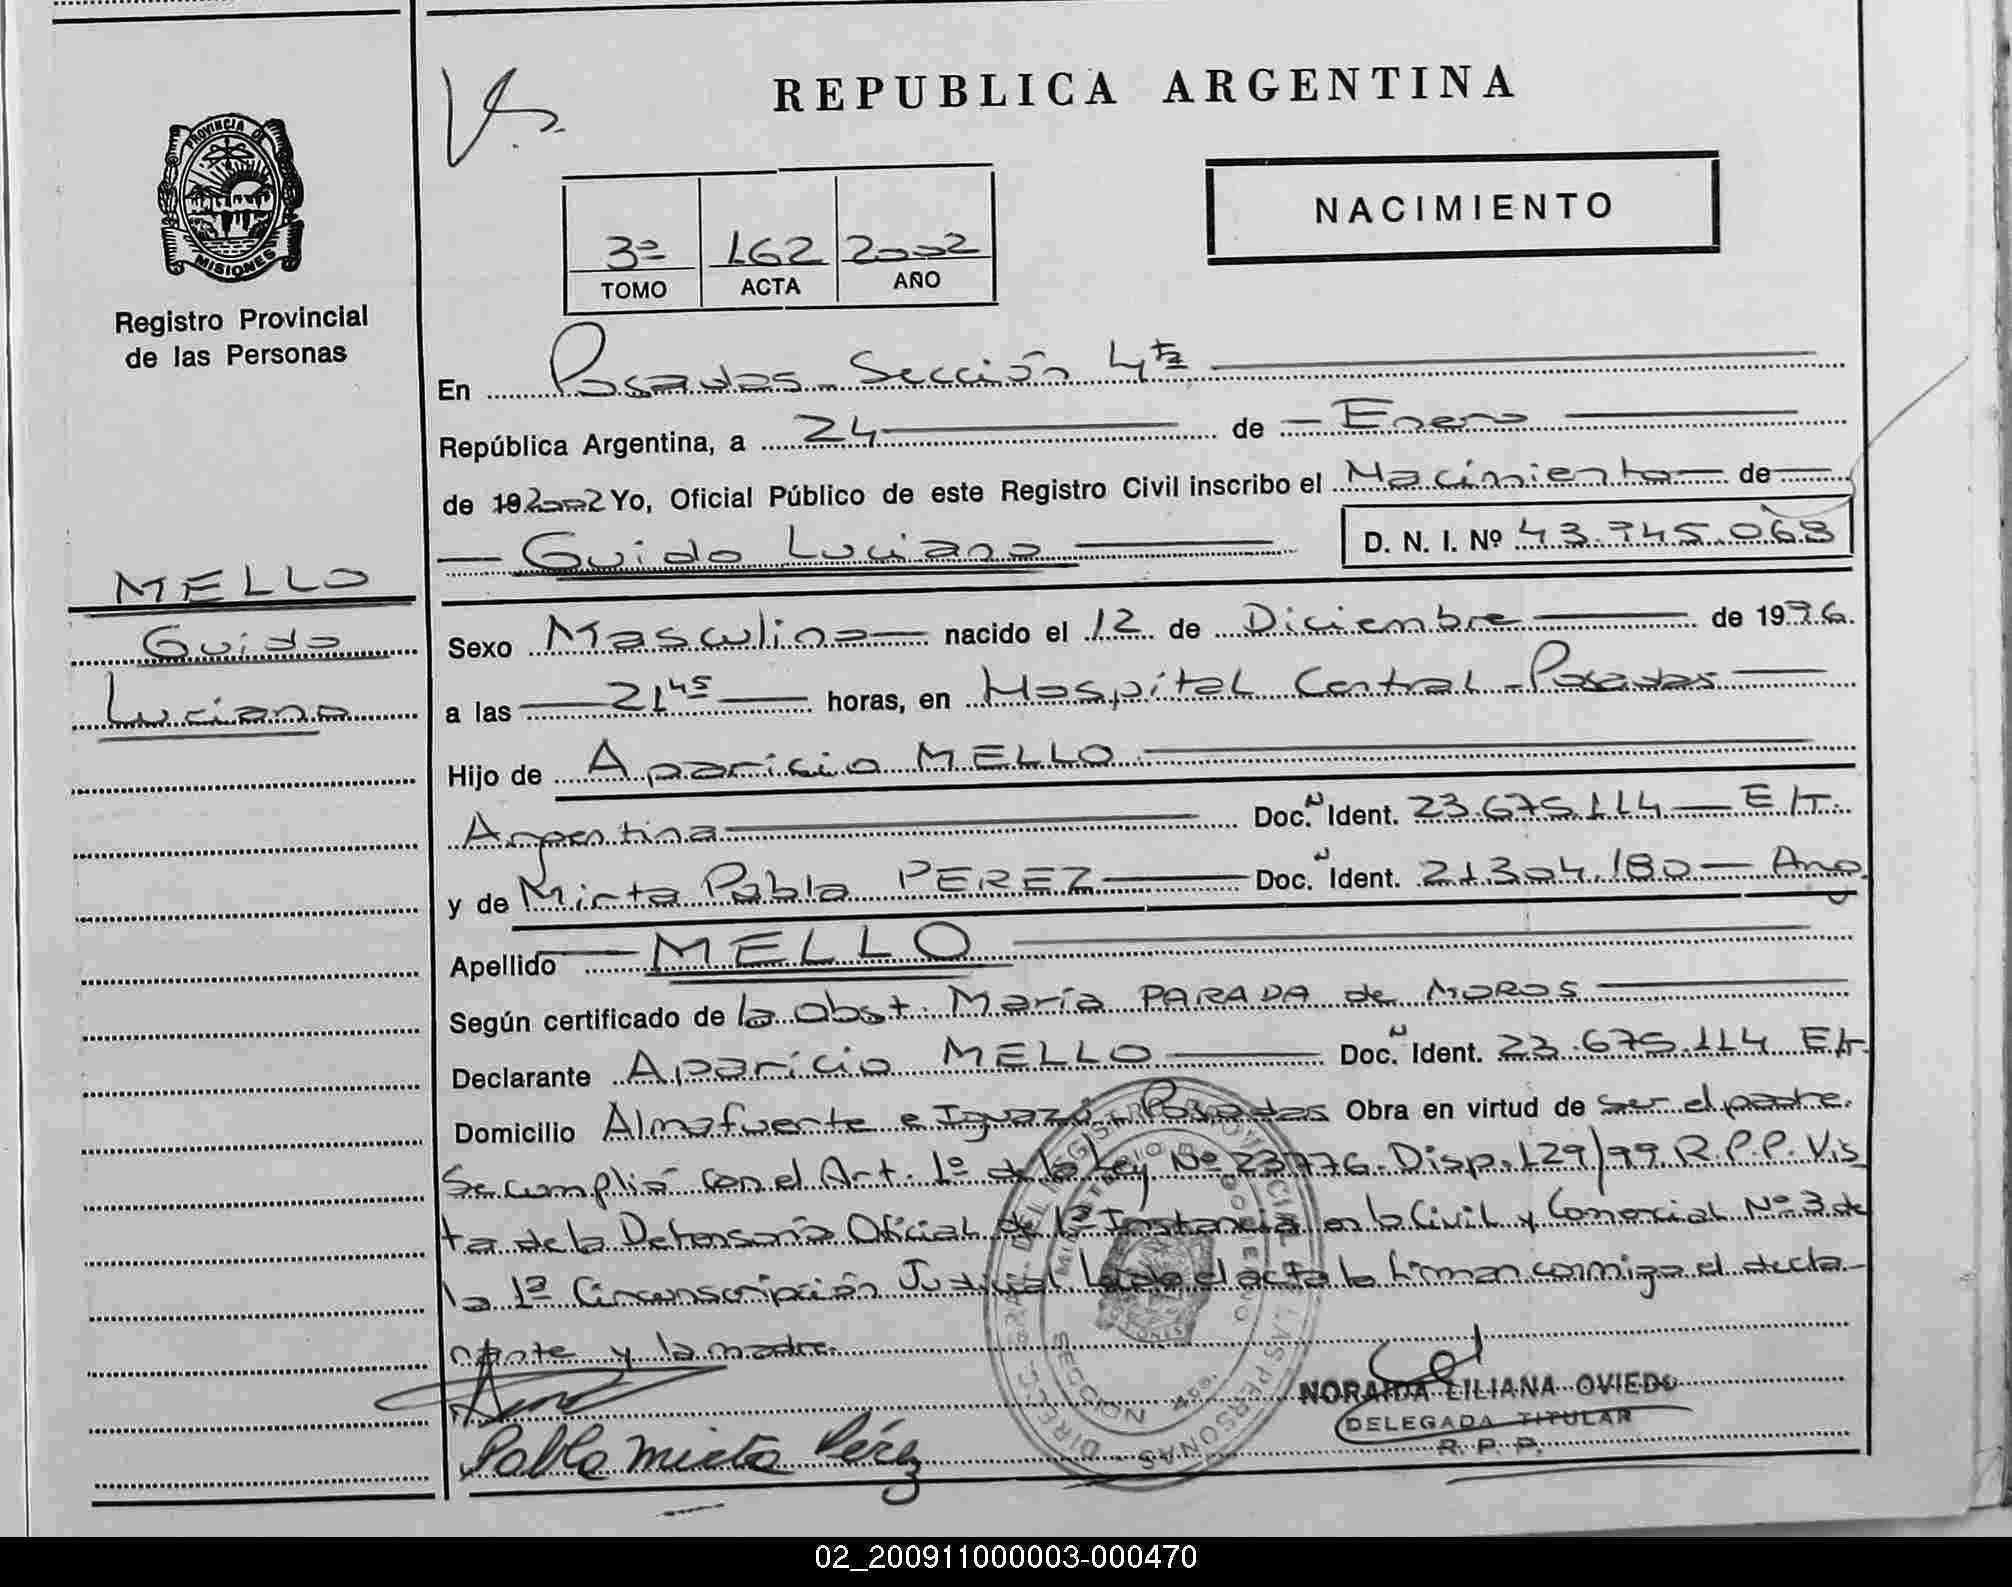 PROVINCIA DE
MISIONES
Registro Provincial
de las Personas
MELLO
Guido
Luciano
REPUBLICA ARGENTINA
NACIMIENTO
3º 162 2002
TOMO ACTA AÑO
En Posadas - Sección 4ta
República Argentina, a 24 de Enero
de 19 2002 Yo, Oficial Público de este Registro Civil inscribo el Nacimiento de
Guido Luciano D. N. I. Nº 43.745.068
Sexo Masculino nacido el 12 de Diciembre de 1996.
a las 21 45 horas, en Hospital Central - Posadas
Hijo de Aparicio MELLO
Argentina Doc. N Ident. 23.675.114 — E/T.
y de Mirta Pabla PEREZ Doc. N Ident. 21304.180 — Arg.
Apellido MELLO
Según certificado de la obst. María PARADA de MOROS
Declarante Aparicio MELLO Doc. N Ident. 23.675.114 E/T.
Domicilio Almafuerte e Iguazú Posadas Obra en virtud de ser el padre.
Se cumplió con el Art. 1º de la Ley Nº 23776. Disp. 129/99. R.P.P. Vis
ta de la Defensoría Oficial de 1ª Instancia en lo Civil y Comercial Nº 3 de
la 1ª Circunscripción Judicial. Leída el acta la firman conmigo el decla-
rante y la madre.
NORAIDA LILIANA OVIEDO
DELEGADA TITULAR
R. P. P.
Pabla Mirta Pérez
02_200911000003-000470